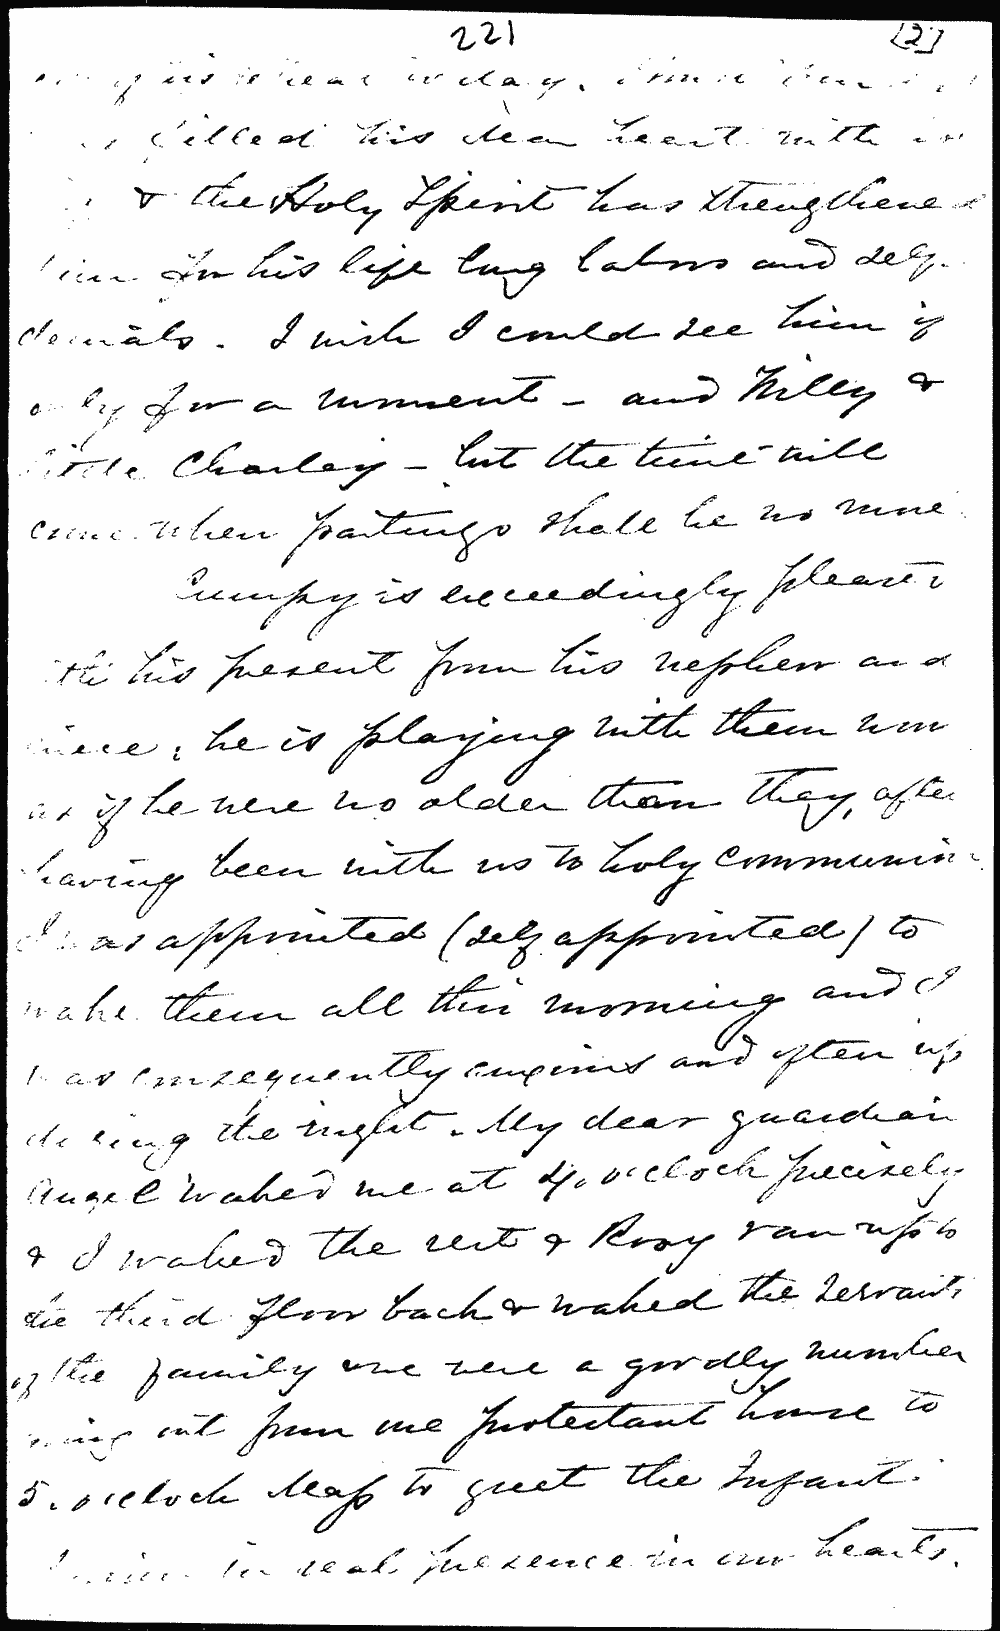 221 [2]
of us to hear today.
filled his dear heart with
& the Holy Spirit has strengthened
him for his life long labors and self-
denials. I wish I could see him if
only for a moment - and Willy &
little Charley - but the time will
come when partings shall be no more
Gumpy is exceedingly pleased
with his present from his nephew and
niece; he is playing with them now
as if he were no older than they, after
having been with us to holy communion
I was appointed (self appointed) to
wake them all this morning and I
was consequently anxious and often up
during the night. My dear guardian
Angel waked me at 4, o'clock precisely
& I waked the rest & Rosy ran up to
the third floor back & waked the servants
of the family & we were a goodly number
going out from one protestant house to
5. o'clock Mass to greet the Infant
in real presence in our hearts.